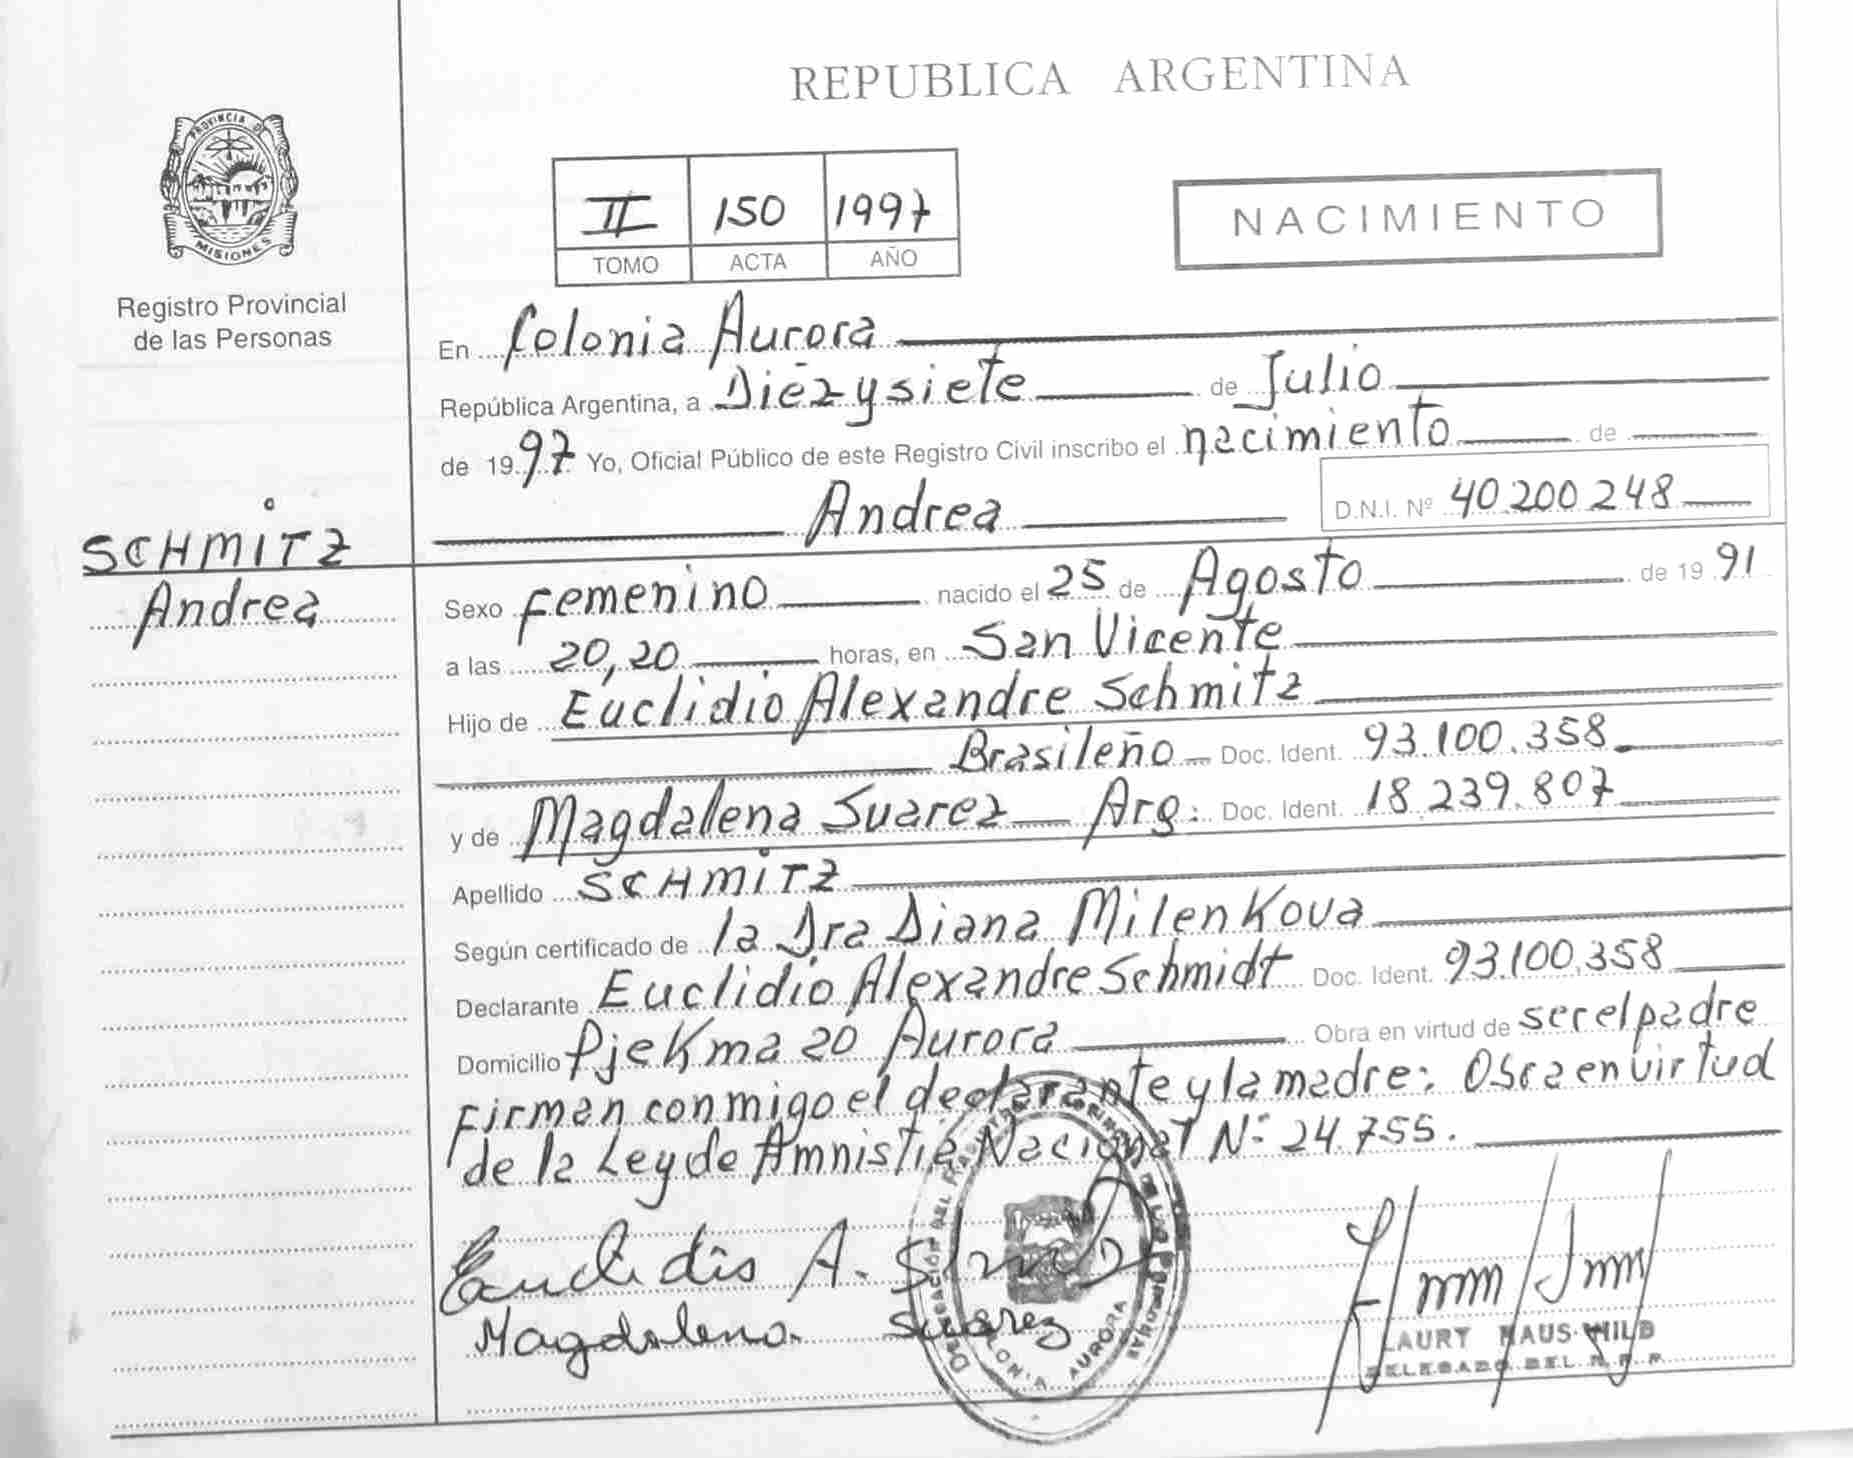 PROVINCIA DE
MISIONES
Registro Provincial
de las Personas
SCHMITZ
Andrea
REPUBLICA ARGENTINA
II 150 1997
TOMO ACTA AÑO
NACIMIENTO
En Colonia Aurora
República Argentina, a Diezysiete de Julio
de 1997 Yo, Oficial Público de este Registro Civil inscribo el nacimiento de
Andrea D.N.I. Nº 40.200.248
Sexo Femenino nacido el 25 de Agosto de 1991
a las 20,20 horas, en San Vicente
Hijo de Euclidio Alexandre Schmitz
Brasileño Doc. Ident. 93.100.358
y de Magdalena Suarez Arg: Doc. Ident. 18.239.807
Apellido SCHMITZ
Según certificado de la Dra Diana Milenkova
Declarante Euclidio Alexandre Schmidt Doc. Ident. 93.100.358
Domicilio Pje Kma 20 Aurora Obra en virtud de ser el padre
Firman conmigo el declarante y la madre: Obra en virtud
de la Ley de Amnistia Nacional Nº 24.755.
Euclidio A.
Magdalena Suarez
COLONIA AURORA
LAURY HAUS-WILD
DELEGADO DEL R.P.P.